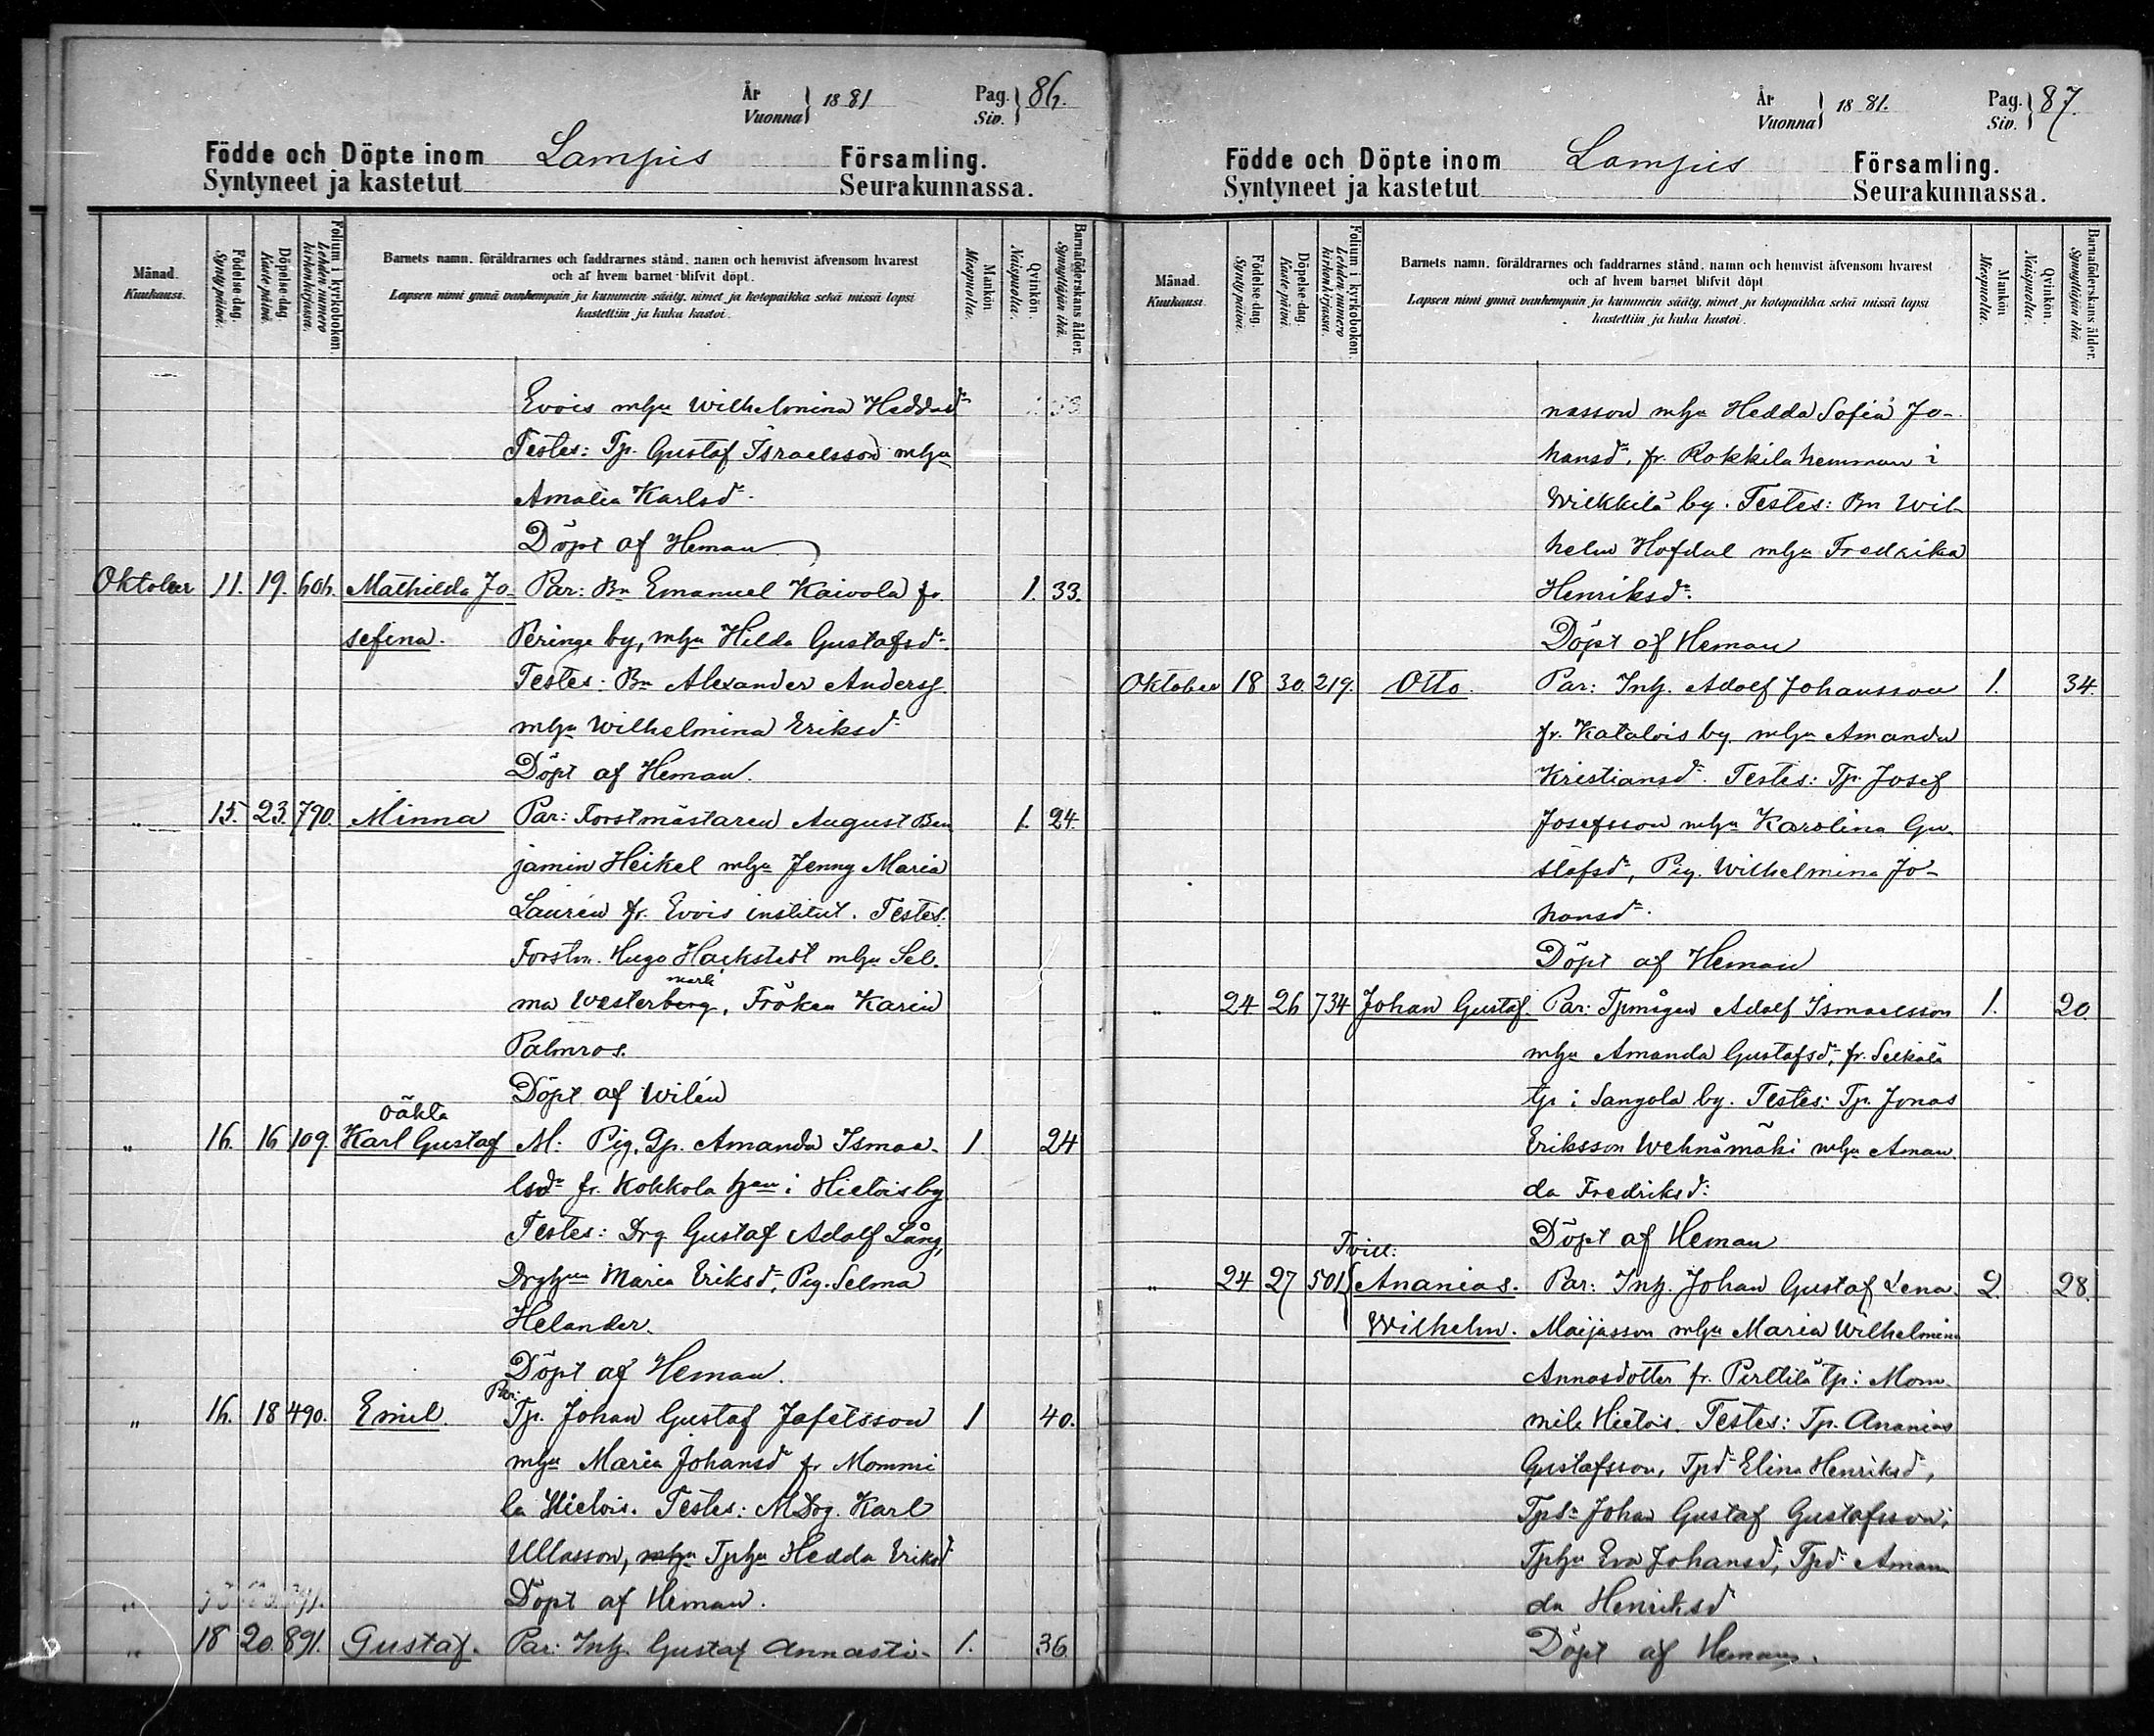 År
Vuonna } 1881
Pag. } 86.
Siv.
Födde och Döpte inom Lampis Församling.
Syntyneet ja kastetut Seurakunnassa.
Månad.
Kuukausi.
Födelse-dag.
Synty päivä.
Döpelse-dag
Kaste päivä.
Folium i kyrkoboken.
Lehden numero
kirkonkirjassa.
Barnets namn, föräldrarnes och faddrarnes stånd, namn och hemvist äfvensom hvarest
och af hvem barnet blifvit döpt.
Lapsen nimi ynnä vanhempain ja kummein sääty, nimet ja kotopaikka sekä missä lapsi
kastettiin ja kuka kastoi.
Mankön
Miespuolta.
Qvinkön.
Naispuolta.
Barnaföderskans ålder.
Synnyttäjän ikä.
Evois mhu Wilhelmina Heddasdr 33
Testes: Tp. Gustaf Israelsson mhu
Amalia Karlsdr.
Döpt af Heman
Oktober 11. 19. 606. Mathilda Jo- Par: Bn Emanuel Kaivola fr. 1. 33.
sefina. Peringe by, mhu Hilda Gustafsdr.
Testes: Bn Alexander Anders
mhu Wilhelmina Eriksdr
Döpt af Heman.
" 15. 23. 790. Minna Par: Forstmästaren August Ben 1. 24.
jamin Heikel mhu Jenny Maria
Laurén fr. Evois institut. Testes:
Forstm. Hugo mhu Sel-
marck
ma Westerberg, Fröken Karin
Palmros.
Döpt af Wilén
oäkta
" 16. 16 109. Karl Gustaf M: Pig. Amanda Ismae- 1 24
lsdr fr. Kokkola hman i Hietois by
Testes: Drg Gustaf Adolf Lång,
Drghu Maria Eriksdr, Pig. Selma
Helander.
Döpt af Heman.
Par:
" 16. 18 490. Emil. Tp. Johan Gustaf Jafetsson 1 40.
mhu Maria Johansdr fr Mommi
la Hietois. Testes: MDrg. Karl
Ullasson, mhu Tphu Hedda Eriksdr
Döpt af Heman.
" 18 20. 891. Gustaf. Par: Inh. Gustaf Annasti- 1. 36
År
Vuonna } 1881.
Pag. } 87.
Siv.
Födde och Döpte inom Lampis Församling.
Syntyneet ja kastetut Seurakunnassa.
Månad.
Kuukausi.
Födelse-dag.
Synty päivä.
Döpelse-dag.
Kaste päivä.
Folium i kyrkoboken.
Lehden numero
kirkonkirjassa.
Barnets namn, föräldrarnes och faddrarnes stånd, namn och hemvist äfvensom hvarest
och af hvem barnet blifvit döpt.
Lapsen nimi ynnä vanhempain ja kummein sääty, nimet ja kotopaikka sekä missä lapsi
kastettiin ja kuka kastoi.
Mankön
Miespuolta.
Qvinkön.
Naispuolta.
Barnaföderskans ålder.
Synnyttäjän ikä.
nasson mhu Hedda Sofia Jo-
hansdr. fr. Rokkila hemman i
Wilkkilä by. Testes: Bn Wil-
helm Hofdal mhu Fredrika
Henriksdr.
Döpt af Heman
Oktober 18 30. 219. Otto. Par: Inh. Adolf Johansson 1. 34.
fr. Katalois by. mhu Amanda
Kristiansdr. Testes: Tp. Josef
Josefsson mhu Karolina Gu-
stafsdr, Pig. Wilhelmina Jo-
hansdr.
Döpt af Heman
" 24 26 734 Johan Gustaf. Par: Tpmågen Adolf Ismaelsson 1. 20.
mhu Amanda Gustafsdr, fr.
tp i Sangola by. Testes: Tp. Jonas
Eriksson Wehnämäki mhu Aman
da Fredriksdr.
Döpt af Heman
Tvill:
" 24 27 501 { Ananias. Par: Inh. Johan Gustaf Lena 2. 28.
Wilhelm. Maijasson mhu Maria Wilhelmina
Annasdotter fr. Perttilä tp i Mom
mila Hietois. Testes: Tp. Ananias
Gustafsson, Tpdr Elina Henriksdr,
Tpsn Johan Gustaf Gustafsson,
Tphu Eva Johansdr, Tpdr Aman
da Henriksdr
Döpt af Heman.